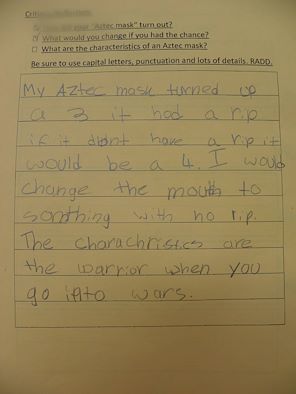 "Aztec mask" turn out?
What would you change if you had the chance?
What are the characteristics of an Aztec mask?
Be sure to use capital letters, punctuation and lots of details. RADD.
My Aztec mask turned up
a 3 it had a rip
if it didnt have a rip it
would be a 4. I would
change the mouth to
somthing with no rip.
The charachristics are
the warrior when you
go into wars.